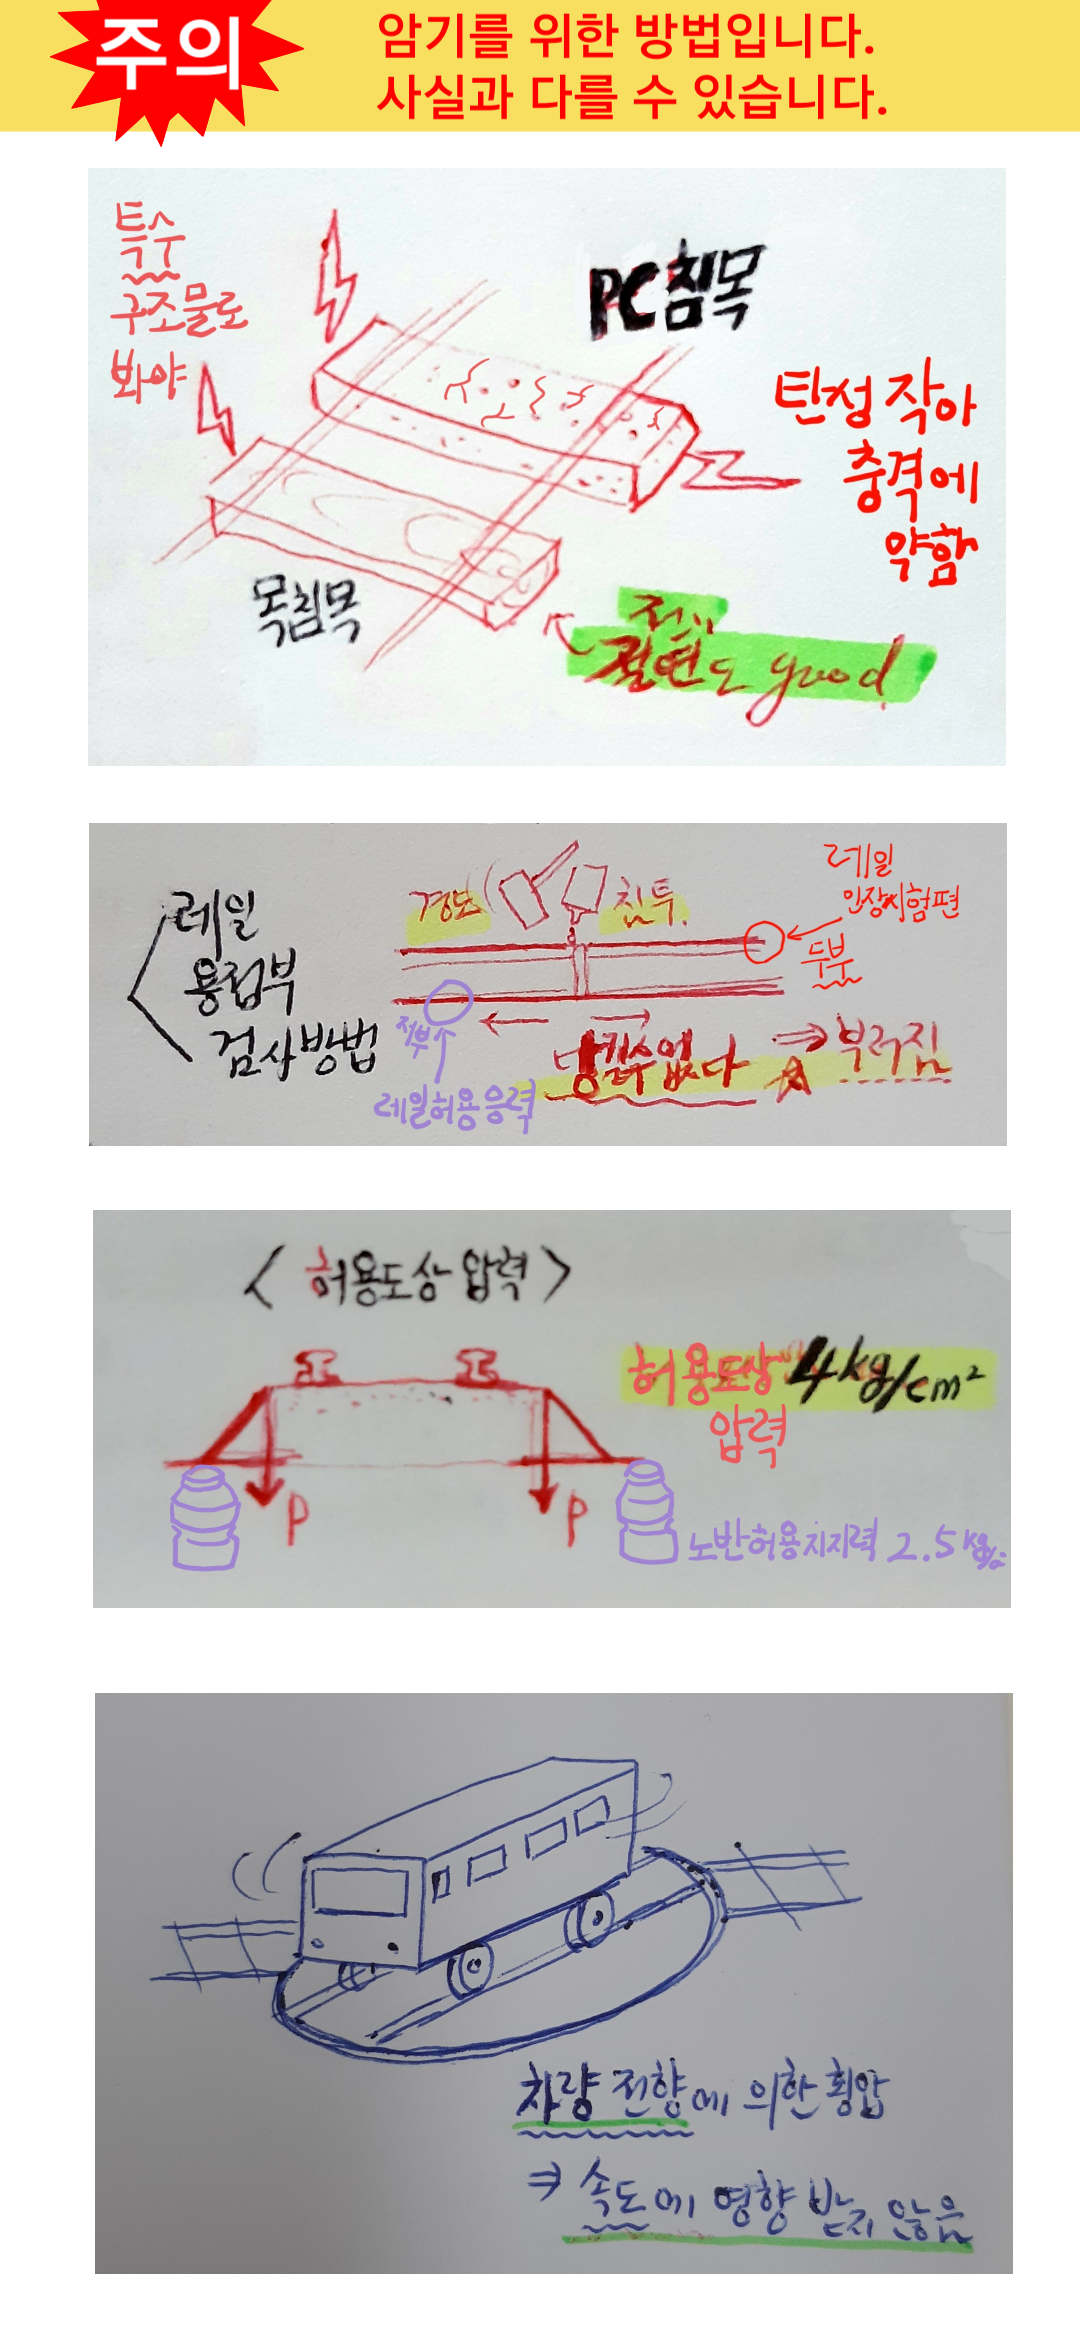 주의
암기를 위한 방법입니다.
사실과 다를 수 있습니다.
특수
구조물로
봐야
PC침목
탄성 작아
충격에
약함
목침목
전기
절연도 good
레일
용접부
검사방법
경도
침투
레일
인장시험편
두부
저부
레일허용응력
당길수없다 ⇒ 부러짐
<허용도상압력>
허용도상 4kg/cm²
압력
P
P
노반허용지지력 2.5kg/
차량 전향에 의한 횡압
⇒ 속도에 영향 받지 않음